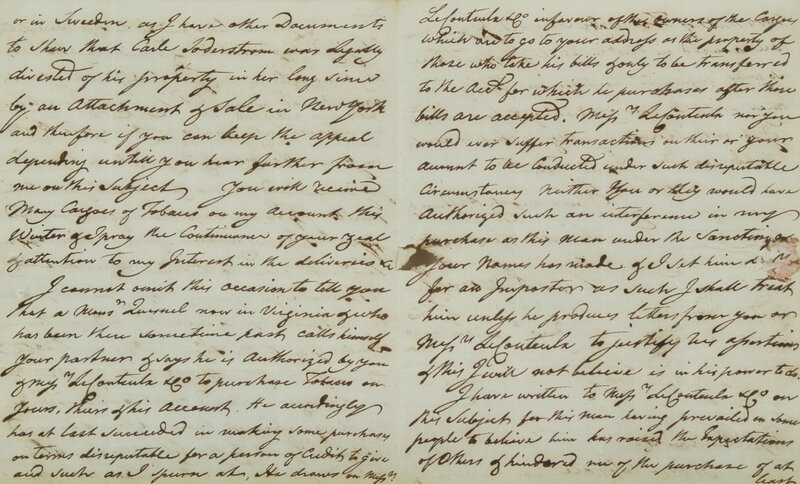 or in Sweeden, as I have other Documents
to Shew that Carle Soderstrom was Legally
divested of his property in her long since
by an Attachment & Sale in New York
and therefore if you can keep the appeal
depending untill you hear further from
me on this Subject You will receive
Many Cargoes of Tobacco on my Account this
Winter & I pray the Continuance of your zeal
& attention to my Interest in the deliveries &c
I cannot omit this occasion to tell you
that a Monsr. Quesnel now in Virginia & who
has been there sometime past calls himself
your partner & says he is Authorized by you
& Messrs. LeCouteulx & Co to purchase Tobacco on
Yours, theirs & his Account. He accordingly
has at last succeeded in making some purchases
on terms disreputable for a person of Credit to give
and such as I spurn at, He draws on Messrs.
LeCouteulx & Co in favour of the owners of the Cargoes
which are to go to your address as the property of
those who take his bills & only to be transferred
to the Acct. for which he purchases after those
bills are accepted. Messrs. LeCouteulx nor you
would ever suffer transactions on their or your
account to be Conducted under such disreputable
Circumstances neither You or they would have
Authorized such an interference in my
purchase as this man under the Sanction of
your Names has made & I set him d
for an Impostor as such I shall treat
him unless he produces letters from you or
Messrs. LeCouteulx to justify his assertions
& this I will not believe is in his power to do
I have written to Messrs. LeCouteulx & Co on
this Subject for this man having prevailed on some
people to believe him has raised the Expectations
of Others & hindered me of the purchase of at
least